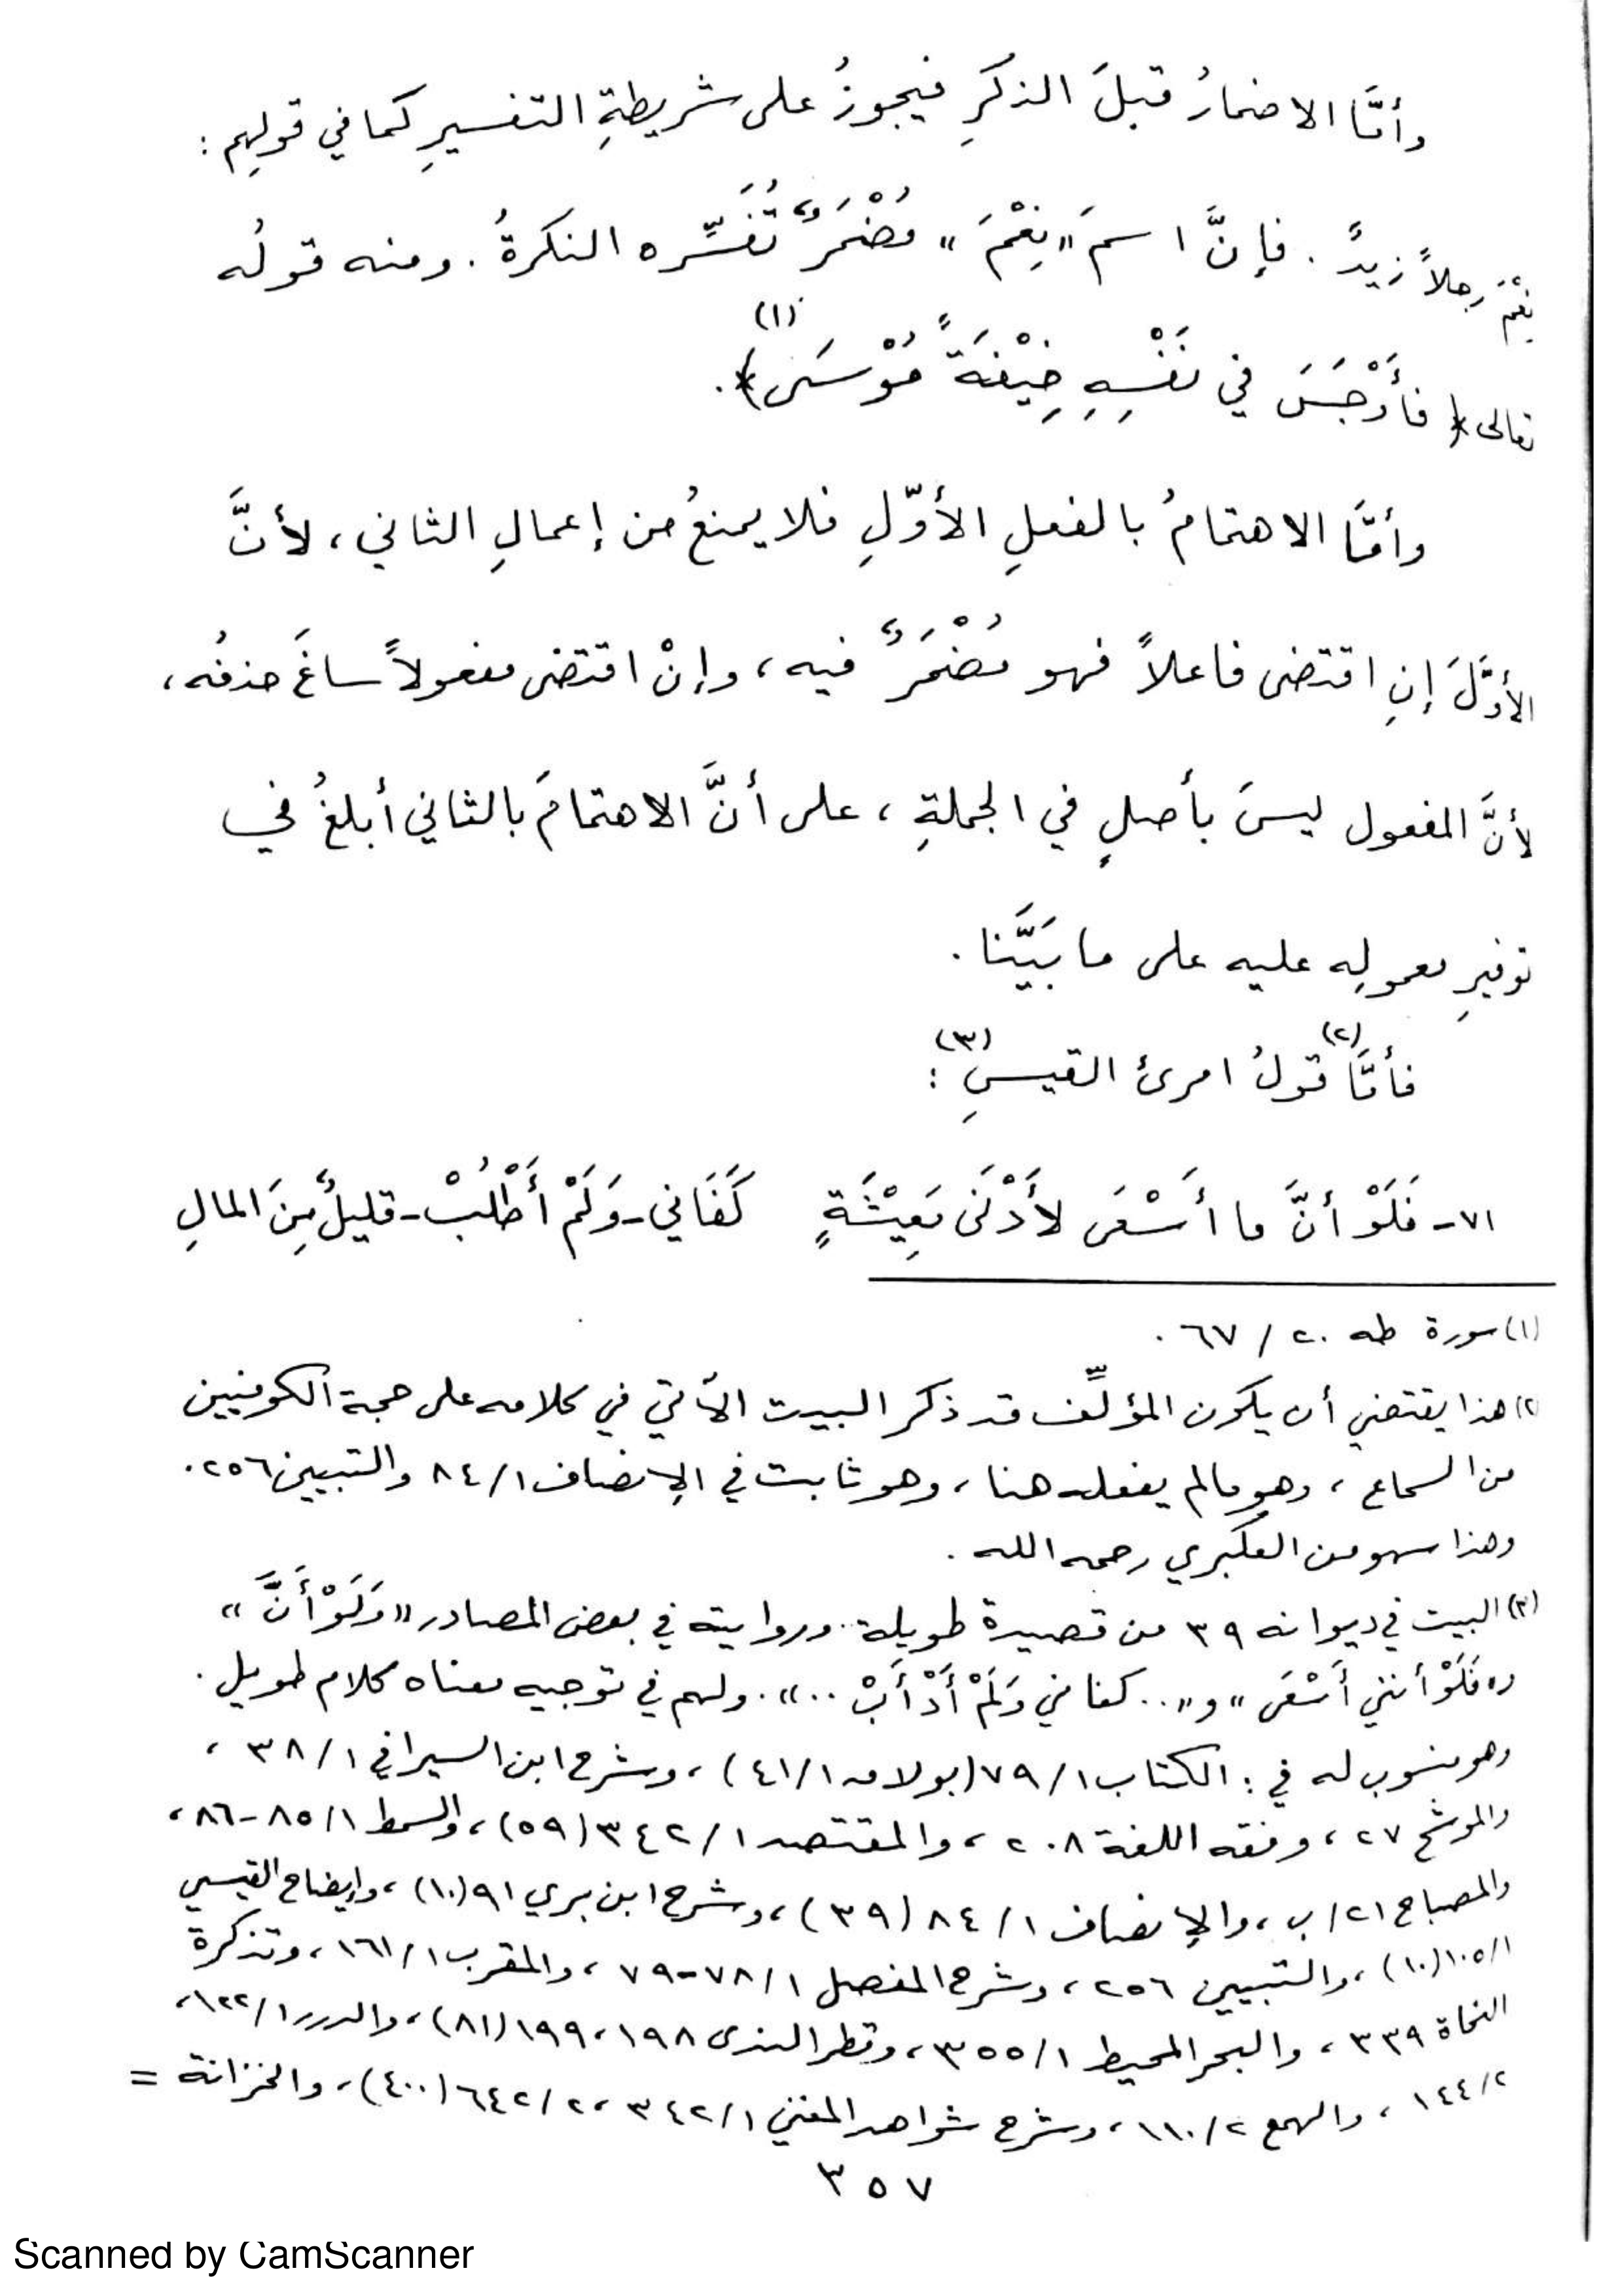 وأمَّا الاضمارُ قبلَ الذكرِ فيجوزُ على شريطةِ التفسيرِ كما في قولِهم :
نِعْمَ رجلاً زيدٌ . فإنَّ اسمَ "نِعْمَ" مُضْمَرٌ تُفَسِّره النكرةُ . ومنه قولُه
تعالى ﴿ فأَوْجَسَ في نَفْسِهِ خِيْفَةً مُوْسَى ﴾(١) .
وأمَّا الاهتمامُ بالفعلِ الأوّلِ فلا يمنعُ من إعمالِ الثاني ، لأنَّ
الأوَّلَ إنِ اقتضى فاعلاً فهو مُضْمَرٌ فيه ، وإنْ اقتضى مفعولاً ساغَ حذفُه ،
لأنَّ المفعول ليسَ بأصلٍ في الجملةِ ، على أنَّ الاهتمامَ بالثاني أبلغُ في
توفيرِ معمولِه عليه على ما بَيَّنا .
فأمَّا(٢) قولُ امرئ القيسِ(٣) :
٧١- فَلَوْ أنَّ ما أَسْعَى لأَدْنَى مَعِيْشَةٍ كَفَاني - وَلَمْ أَطْلُبْ - قليلٌ مِنَ المالِ
(١) سورة طه ٢٠ / ٦٧ .
(٢) هذا يقتضي أن يكون المؤلِّف قد ذكر البيت الآتي في كلامه على حجة الكوفيين
من السماع ، وهو مالم يفعله هنا ، وهو ثابت في الإنصاف ١/ ٨٤ والتبيين ٢٥٦ .
وهذا سهو من العكبري رحمه الله .
(٣) البيت في ديوانه ٣٩ من قصيدة طويلة . وروايته في بعض المصادر "وَلَوْ أَنَّ"
و"فَلَوْ أنني أَسْعَى" و".. كفاني وَلَمْ أَدْأَبْ .." . ولهم في توجيه معناه كلام طويل .
وهو منسوب له في : الكتاب ١/ ٧٩ (بولاق ١/ ٤١) ، وشرح ابن السيرافي ١/ ٣٨ ،
والموشح ٢٧ ، وفقه اللغة ٢٠٨ ، والمقتصد ١/ ٣٤٢ (٥٩) ، والسمط ١/ ٨٥-٨٦ ،
والمصباح ٢١/ ب ، والإنصاف ١/ ٨٤ (٣٩) ، وشرح ابن بري ٩١ (١٠) ، وإيضاح القيسي
١/ ١٠٥ (١٠) ، والتبيين ٢٥٦ ، وشرح المفصل ١/ ٧٨-٧٩ ، والمقرب ١/ ١٦١ ، وتذكرة
النحاة ٣٣٩ ، والبحر المحيط ١/ ٣٥٥ ، وقطر الندى ١٩٨ ، ١٩٩ (٨١) ، والدرر ١/ ١٢٢ ،
٢/ ١٤٤ ، والهمع ٢/ ١١٠ ، وشرح شواهد المغني ١/ ٣٤٢ ، ٢/ ٦٤٢ (٤٠٠) ، والخزانة =
٣٥٧
Scanned by CamScanner